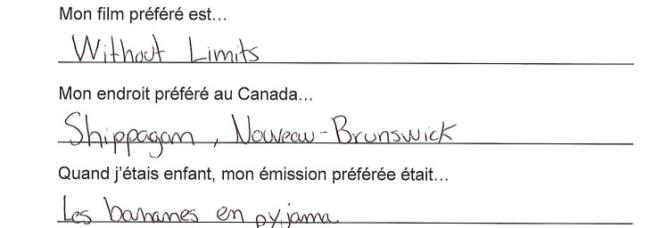 Mon film préféré est...
Without Limits
Mon endroit préféré au Canada...
Shippagan, Nouveau-Brunswick
Quand j'étais enfant, mon émission préférée était...
Les bananes en pyjama.